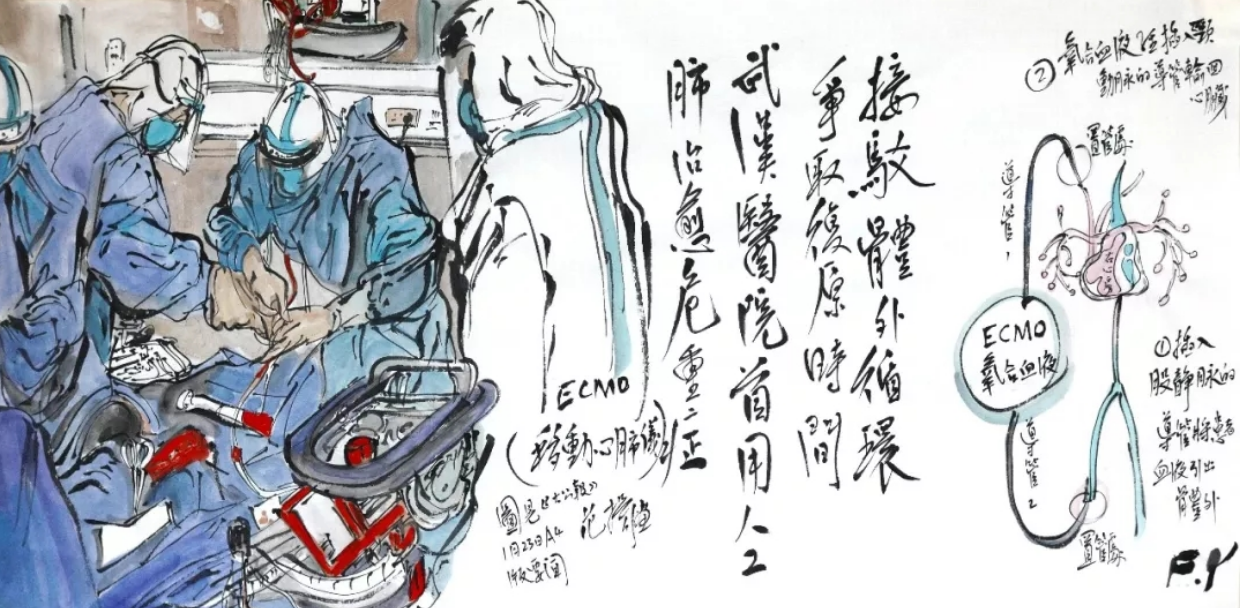 接駁體外循環
爭取復原時間
武漢醫院首用人工
肺治愈危重症
ECMO
(移動心肺儀)
圖見《大公報》
1月23日A4
版要聞
②氧合血液經插入頸
動脈的導管輸回
心臟
置管處
導管1
ECMO
氧合血液
導管2
置管處
①插入
股靜脈的
導管將患者
血液引出
體外
F.Y